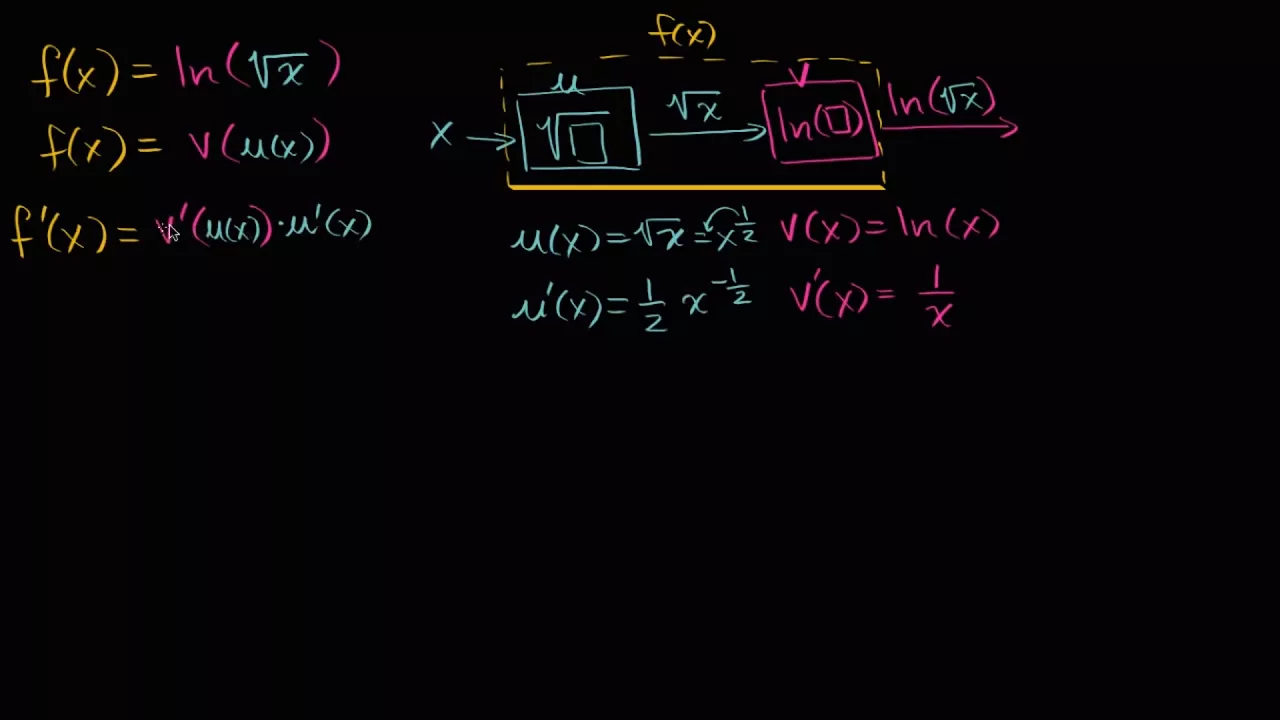 f(x) = ln(√x)
f(x) = v(u(x))
f'(x) = v'(u(x)) · u'(x)
f(x)
x → u √□ √x → v ln(□) ln(√x) →
u(x) = √x = x^(1/2) v(x) = ln(x)
u'(x) = 1/2 x^(-1/2) v'(x) = 1/x